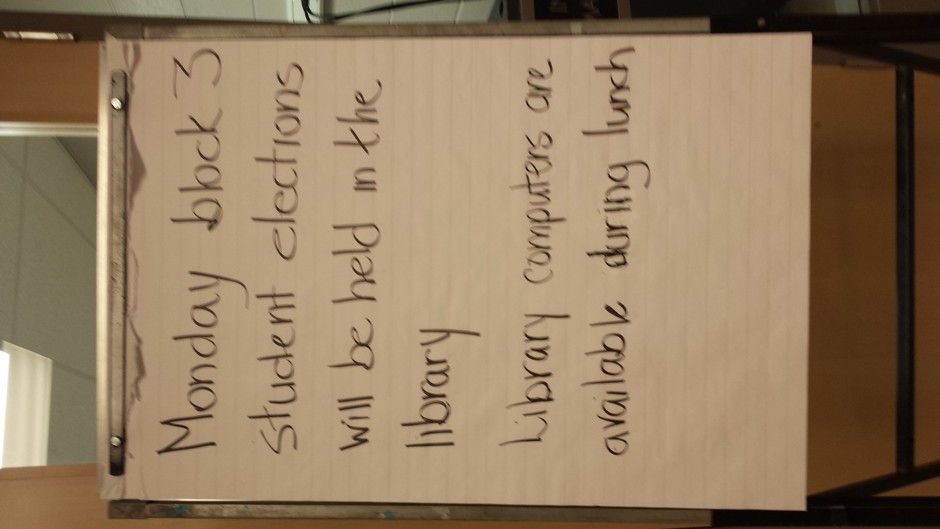 Monday block 3
student elections
will be held in the
library
Library computers are
available during lunch